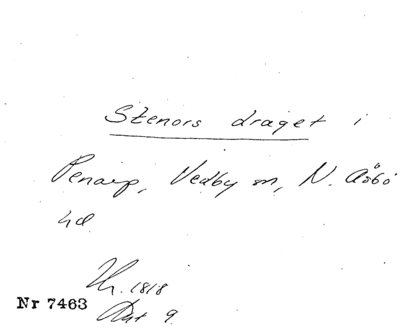 Stenors draget i
Penarp, Vedby sn, N. Åsbo
hd
Nr 7463
1818
Akt 9